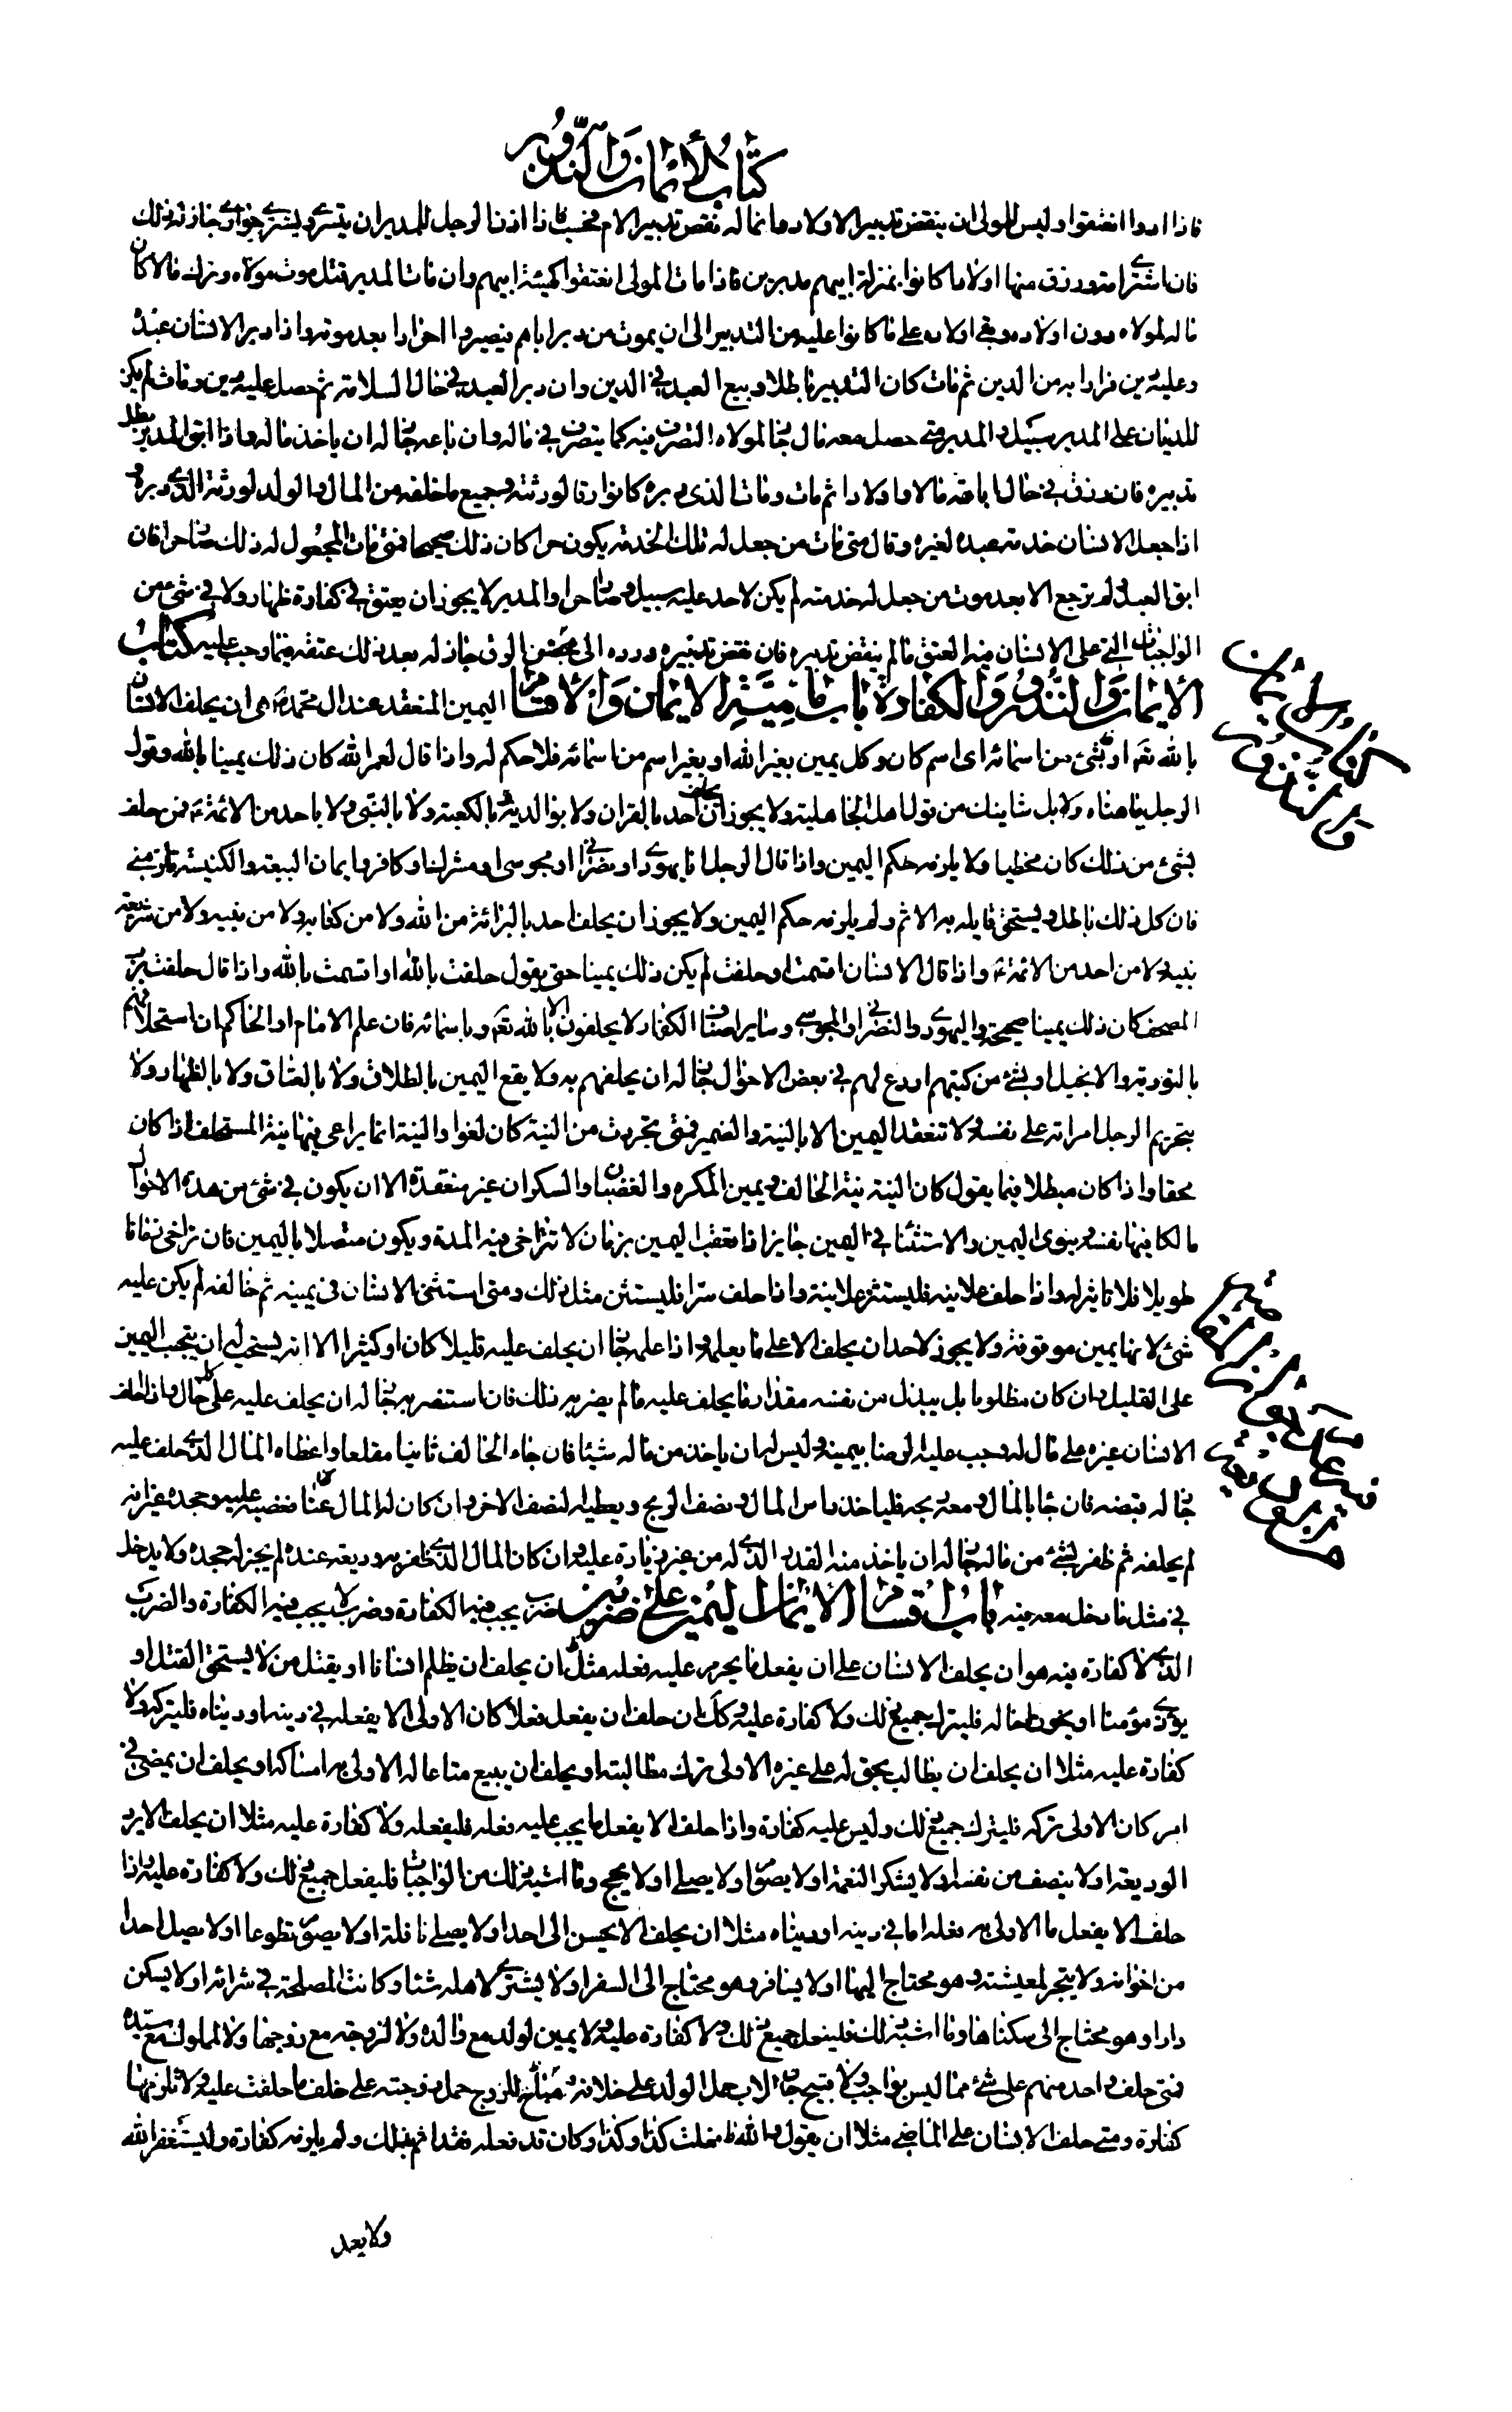 كتاب الأيمان والنذور
فاذا ادوا انعتقوا وليس للمولى ان ينقض تدبير الاولاد وانما له نقض تدبير الام فحسب فاذا اذن الرجل للمدبر ان يتسرى ويشترى جوارى جاز له ذلك
فان اشترى امة ورزق منها اولادا كانوا بمنزلة ابيهم مدبرين فاذا مات المولى انعتقوا كهيئة ابيهم وان مات المدبر قبل موت مولاه وترك مالا كان
ماله لمولاه دون اولاده وبقى اولاده على ما كانوا عليه من التدبير الى ان يموت من دبر اباهم فيصيروا احرارا بعد موته واذا دبر الانسان عبده
وعليه دين فرارا به من الدين ثم مات كان التدبير باطلا وبيع العبد في الدين وان دبر العبد في حال السلامة ثم حصل عليه دين ومات لم يكن
للديان على المدبر سبيل والمدبر متى حصل معه مال جاز لمولاه التصرف فيه كما يتصرف في ماله وان باعه جاز له ان ياخذ ماله واذا ابق المدبر بطل
تدبيره فان رزق في حال اباقه مالا واولادا ثم مات ومات الذي دبره كانوا رقا لورثته وجميع ما خلفه من المال والولد لورثة الذي دبره و
اذا جعل الانسان خدمة عبده لغيره وقال متى مات من جعل له تلك الخدمة يكون حرا كان ذلك صحيحا فمتى مات المجعول له ذلك صار حرا فان
ابق العبد ولم يرجع الا بعد موت من جعل له خدمته لم يكن لاحد عليه سبيل وصار حرا والمدبر لا يجوز ان يعتق في كفارة ظهار ولا في شئ من
الواجبات التي على الانسان فيه العتق ما لم ينقض تدبيره فان نقض تدبيره ورده الى محض الرق جاز له بعد ذلك عتقه فيما وجب عليه كتاب
الايمان والنذور والكفارة باب ماهية الايمان والاقسام اليمين المنعقد عند ال محمد ع هى ان يحلف الانسان
بالله تع او بشئ من اسمائه اى اسم كان وكل يمين بغير الله او بغير اسم من اسمائه فلا حكم له واذا قال لعمر الله كان ذلك يمينا بالله وقول
الرجل يا هناه ولا بل شانيك من قول اهل الجاهلية ولا يجوز ان يحلف احد بالقران ولا بوالديه ولا بالكعبة ولا بالنبى ولا باحد من الائمة ع فمن حلف
بشئ من ذلك كان مخطيا ولا يلزمه حكم اليمين واذا قال الرجل انا يهودى او نصرانى او مجوسى او مشرك او كافر وايمان البيعة والكنيسة تلزمنى
فان كل ذلك باطل ويستحق قايله به الاثم ولم يلزمه حكم اليمين ولا يجوز ان يحلف احد بالبرائة من الله ولا من كتابه ولا من نبيه ولا من شريعة
نبيه ولا من احد من الائمة ع واذا قال الانسان اقسمت او حلفت لم يكن ذلك يمينا حتى يقول حلفت بالله او اقسمت بالله واذا قال حلفت برب
المصحف كان ذلك يمينا صحيحة واليهودى والنصرانى والمجوسى وساير اصناف الكفار لا يحلفون الا بالله تع وباسمائه فان علم الامام او الحاكم ان استحلافهم
بالتورية والانجيل او بشئ من كتبهم اردع لهم في بعض الاحوال جاز له ان يحلفهم به ولا يقع اليمين بالطلاق ولا بالعتاق ولا بالظهار ولا
بتحريم الرجل امراته على نفسه ولا تنعقد اليمين الا بالنية والضمير فمتى تجردت من النية كان لغوا والنية انما يراعى فيها نية المستحلف اذا كان
محقا واذا كان مبطلا فيما يقول كان النية نية الحالف ويمين المكره والغضبان والسكران غير منعقدة الا ان يكون في شئ من هذه الاحوال
مالكا فيها نفسه وينوى اليمين والاستثنا في اليمين جايز اذا تعقب اليمين بزمان لا تتراخى فيه المدة ويكون متصلا باليمين فان تراخى زمانا
طويلا فلا تاثير له واذا حلف علانيه فليستثن علانية واذا حلف سرا فليستثن مثل ذلك ومتى استثنى الانسان في يمينه ثم خالفه لم يكن عليه
شئ لانها يمين موقوفة ولا يجوز لاحد ان يحلف الا على ما يعلم واذا علمه جاز ان يحلف عليه قليلا كان او كثيرا الا انه يستحب له ان يتجنب اليمين
على القليل وان كان مظلوما بل يبذل من نفسه مقدار ما يحلف عليه ما لم يضر به ذلك فان استضر به جاز له ان يحلف عليه على كل حال واذا حلف
الانسان غيره على مال له وجب عليه الرضا بيمينه وليس له ان ياخذ من ماله شيئا فان جاء الحالف ثانيا مقلعا واعطاه المال الذي حلف عليه
جاز له قبضه فان جاء بالمال ومعه ربحه فلياخذ راس المال ونصف الربح ويعطيه النصف الاخر وان كان له المال عنده فغصبه عليه وجحده غير انه
لم يحلفه ثم ظفر بشئ من ماله جاز له ان ياخذ منه القدر الذي له من غير زيادة عليه وان كان المال الذي ظفر به وديعة عنده لم يجز له جحده ولا يدخل
في مثل ما دخل معه فيه باب اقسام الايمان اليمين على ضربين ضرب يجب فيه الكفارة وضرب لا يجب فيه الكفارة والضرب
الذي لا كفارة فيه هو ان يحلف الانسان على ان يفعل ما يحرم عليه فعله مثل ان يحلف ان يظلم انسانا او يقتل من لا يستحق القتل او
يوذى مؤمنا او يخون امانة له فليترك جميع ذلك ولا كفارة عليه وكك ان حلف ان يفعل فعلا كان الاولى الا يفعله في دينه او دنياه فليتركه ولا
كفارة عليه مثلا ان يحلف ان يطالب بحق له على غيره الاولى ترك مطالبته او يحلف ان يبيع متاعا له الاولى به امساكه او يحلف ان يمضى في
امر كان الاولى تركه فليترك جميع ذلك وليس عليه كفارة واذا حلف الا يفعل ما يجب عليه فعله فليفعله ولا كفارة عليه مثلا ان يحلف الا يرد
الوديعة او لا ينصف من نفسه او لا يشكر النعمة او لا يصوم او لا يصلى او لا يحج وما اشبه ذلك من الواجبات فليفعل جميع ذلك ولا كفارة عليه واذا
حلف الا يفعل ما الاولى به فعله اما في دينه او دنياه مثلا ان يحلف الا يحسن الى احد او لا يصلى نافلة او لا يصوم تطوعا او لا يصل احدا
من اخوانه ولا يتجر لمعيشته وهو محتاج اليها او لا يسافر وهو محتاج الى السفر او لا يشترى لاهله شيئا وكانت المصلحة في شرائه او لا يسكن
دارا وهو محتاج الى سكناها وما اشبه ذلك فليفعل جميع ذلك ولا كفارة عليه ولا يمين لولد مع والده ولا لزوجة مع زوجها ولا لمملوك مع سيده
فمتى حلف واحد منهم على شئ مما ليس بواجب ولا قبيح جاز للاب حمل الولد على خلافه وساغ للزوج حمل زوجته على خلف ما حلفت عليه ولا تلزمها
كفارة ومتى حلف الانسان على الماضى مثلا ان يقول والله ما فعلت كذا وكذا وكان قد فعله فقد اثم بذلك ولم يلزمه كفارة وليستغفر الله
ولا يعد